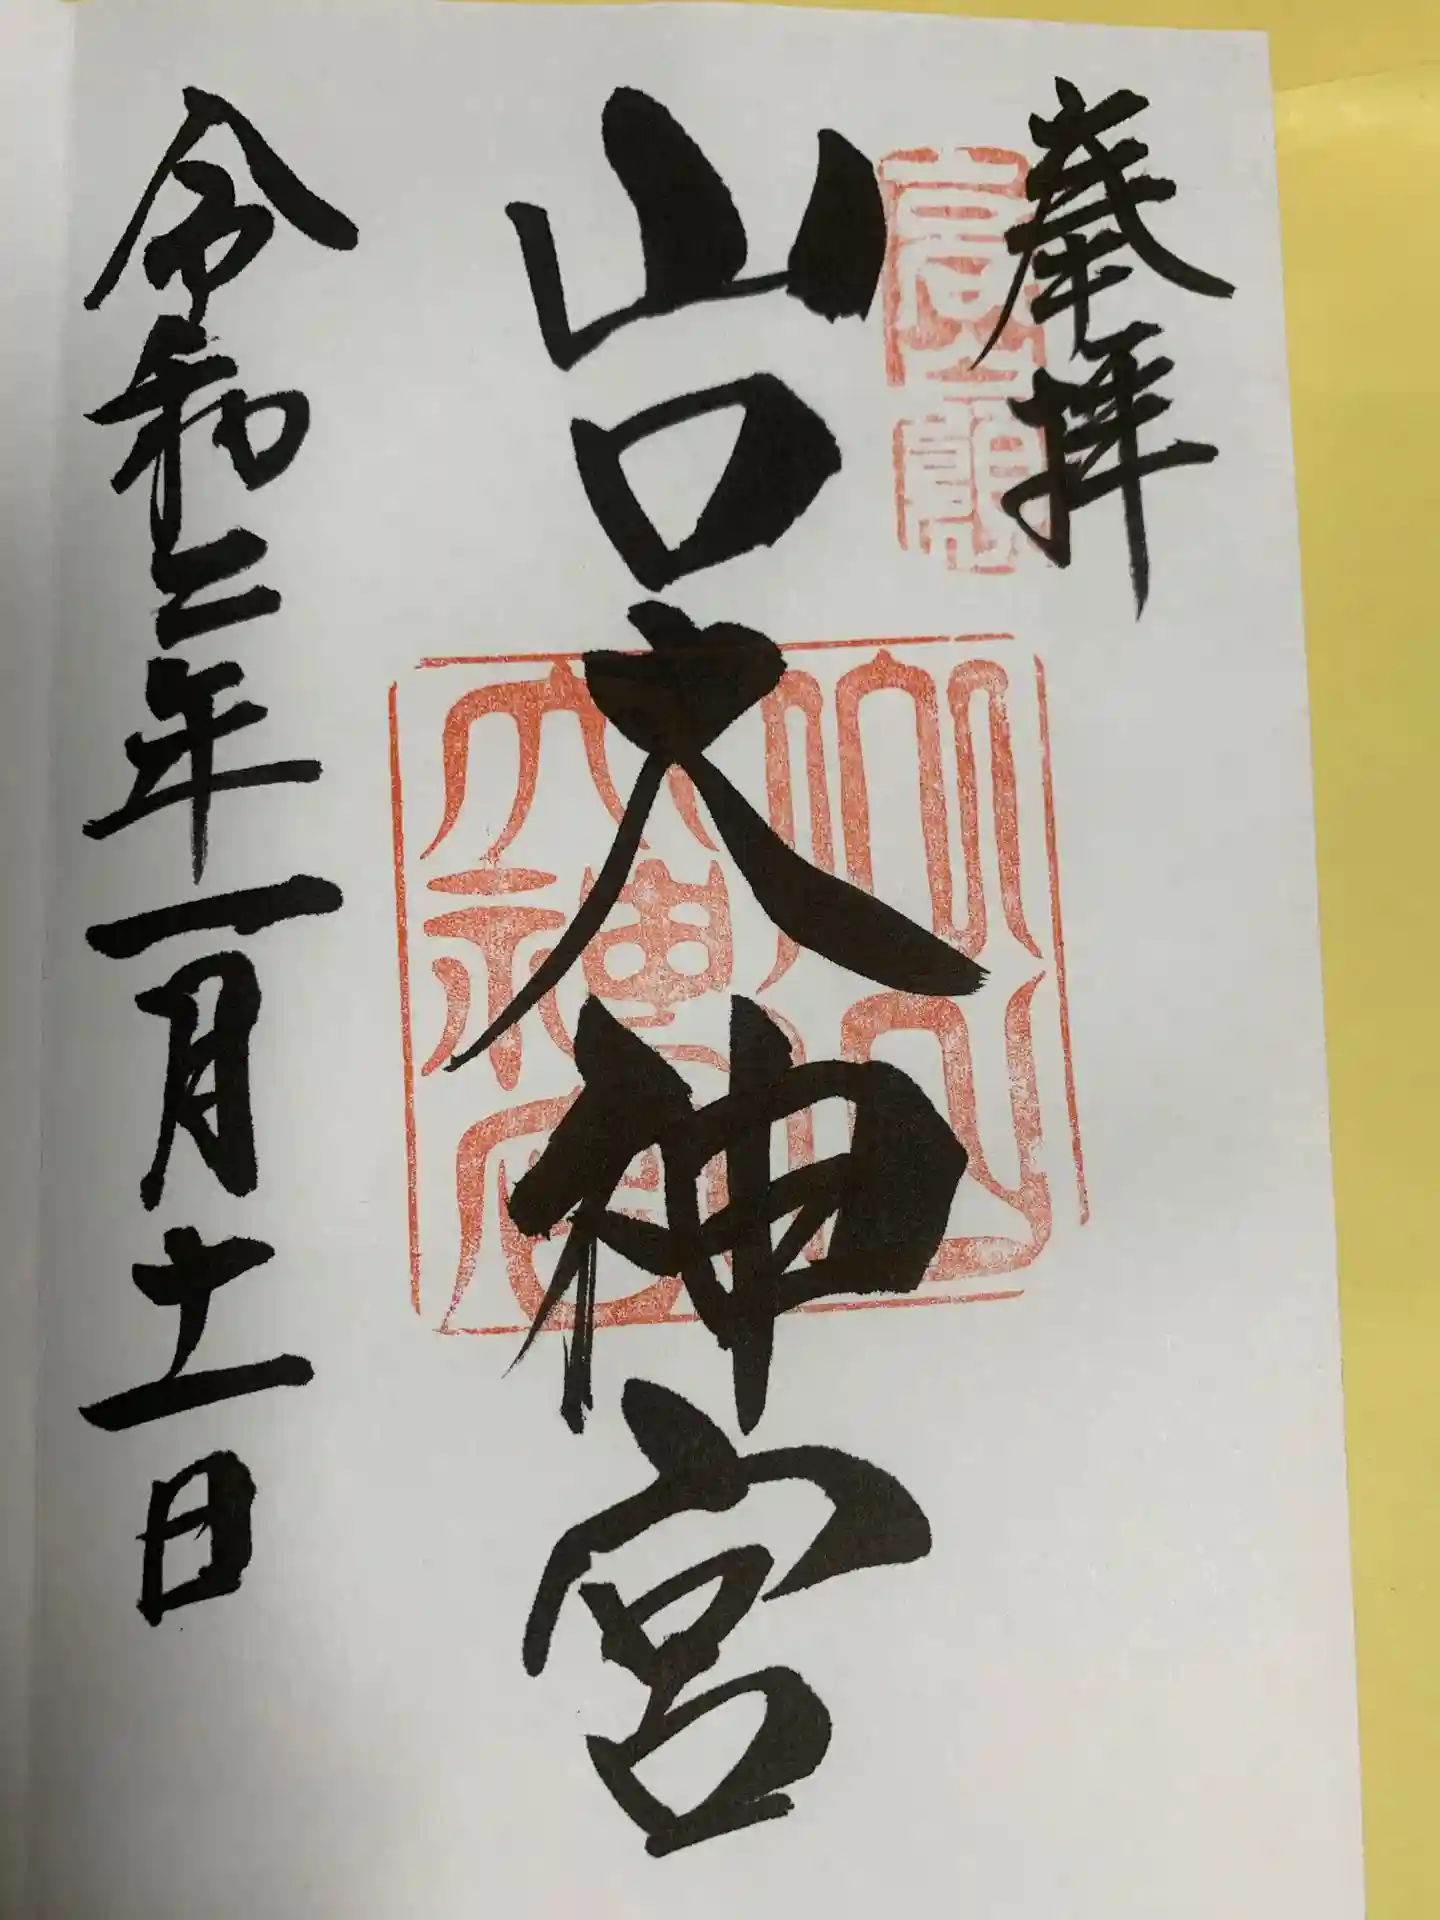 奉拝
高嶺
山口大神宮
山口大神宮
令和二年一月十一日